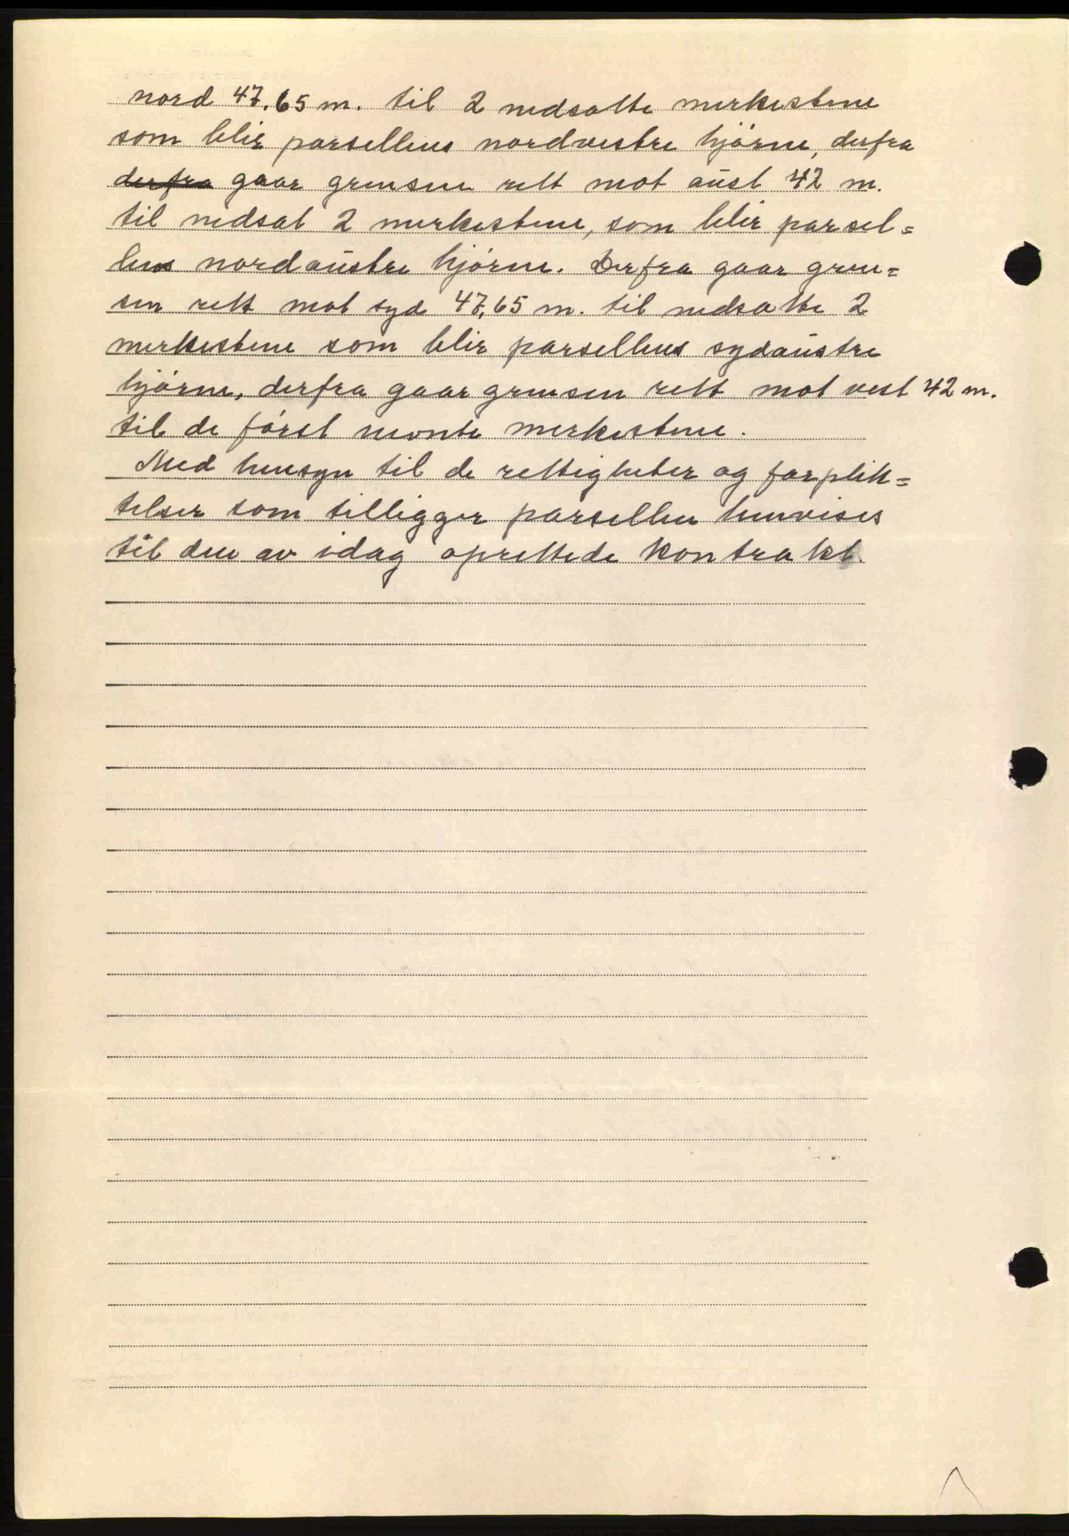 nord 47.65 m. til 2 nedsatte merkestene
som blir parsellens nordvestre hjørne, derfra
derfra gaar grensen rett mot aust 42 m.
til nedsat 2 merkestene, som blir parsel=
lens nordaustre hjørne. Derfra gaar gren=
sen rett mot syd 47,65 m. til nedsatte 2
merkestene som blir parsellens sydaustre
hjørne, derfra gaar grensen rett mot vest 42 m.
til de først nevnte merkestene.
Med hensyn til de rettigheter og forplik=
telser som tilligger parsellen henvises
til den av idag oprettede kontrakt.